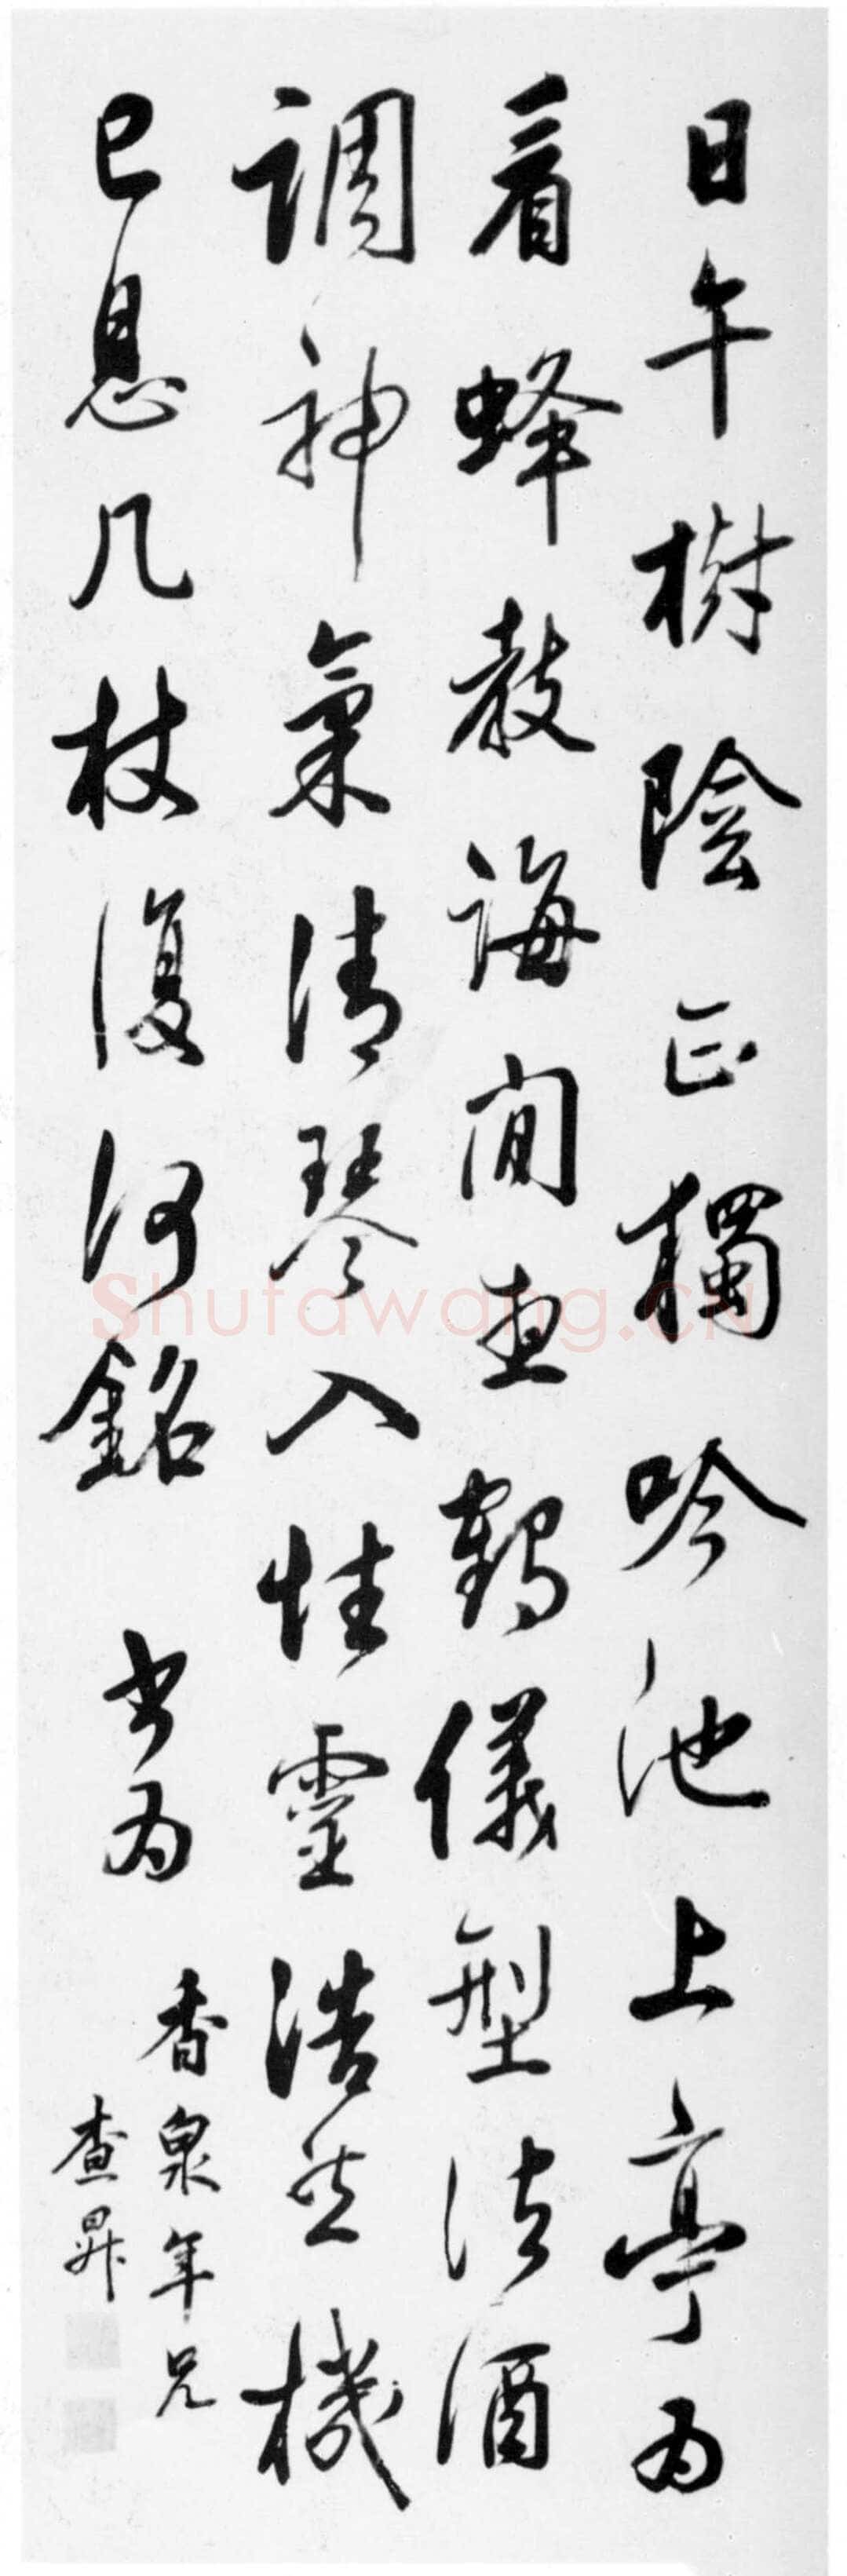 日午樹陰正獨吟池上亭為
看蜂教誨間鶴儀型法酒
調神氣清琴入性靈浩然機
已息几杖復何銘 书为
香泉年兄
查昇
Shufawang.CN